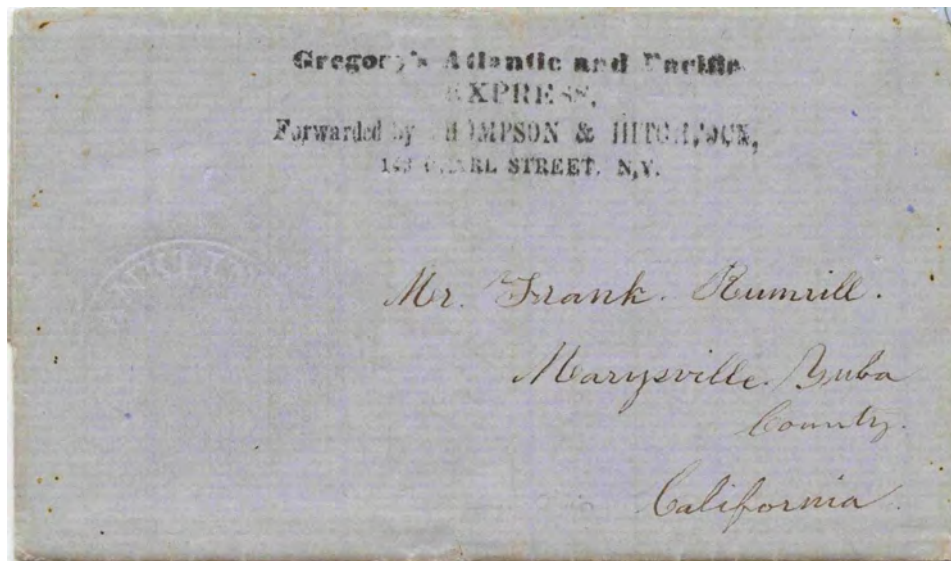 Gregory's Atlantic and Pacific
EXPRESS,
Forwarded by THOMPSON & HITCHCOCK,
149 PEARL STREET, N.Y.
Mr. Frank. Rumrill.
Marysville. Yuba
County.
California.